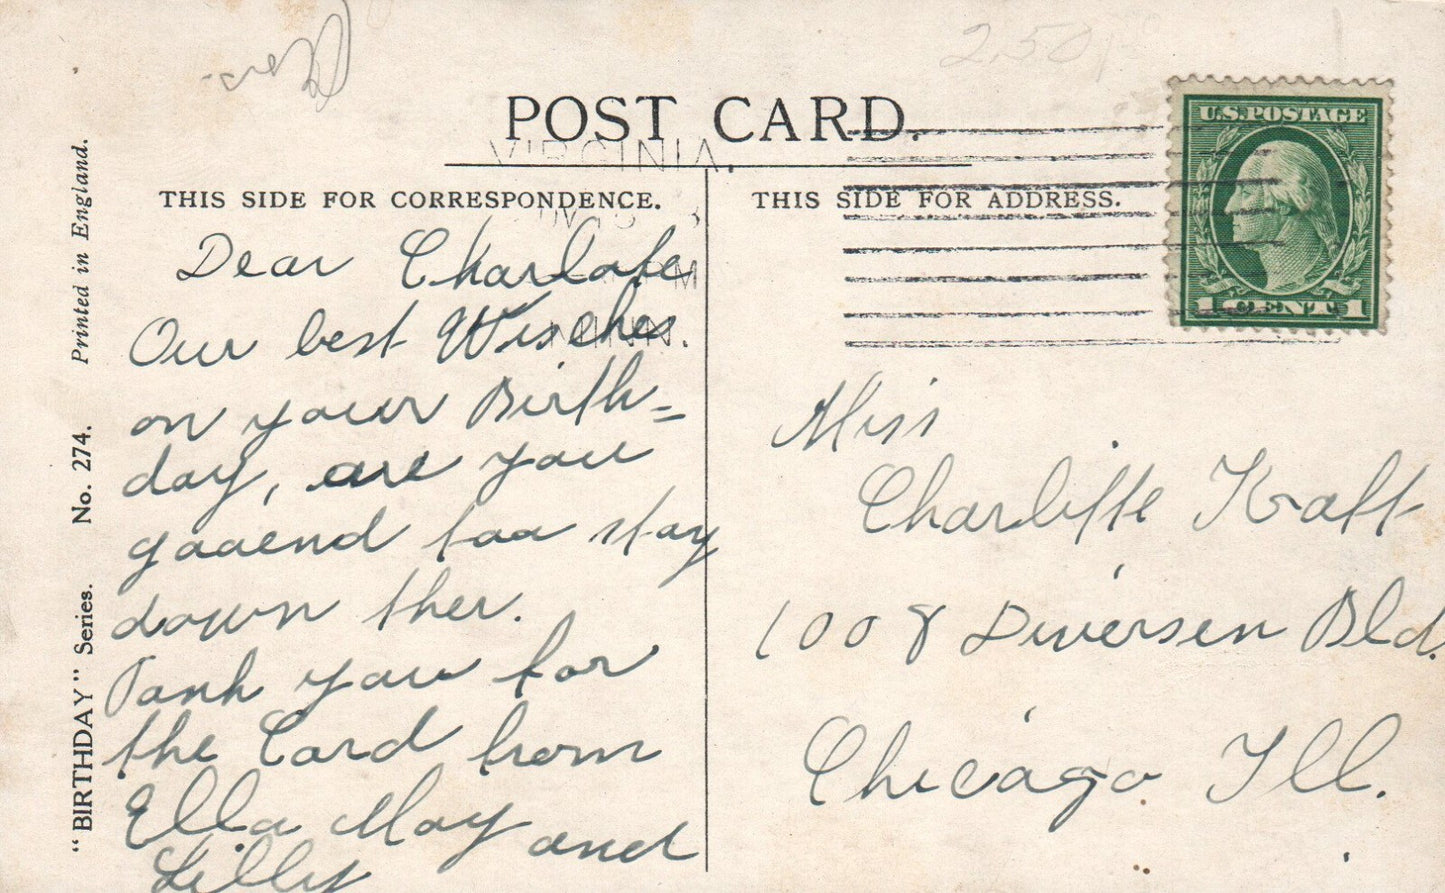 2.50
POST CARD.
VIRGINIA.
THIS SIDE FOR CORRESPONDENCE.
THIS SIDE FOR ADDRESS.
U.S. POSTAGE
1 CENT 1
PM
MINN.
Dear Charlote
Our best Wisches
on your Birth=
day, are you
gooend too stay
down ther.
Tank you for
the Card from
Ella May and
Lilly
Miss
Charlitte Kraft
1008 Diversen Bld.
Chicago Ill.
"BIRTHDAY" Series. No. 274. Printed in England.